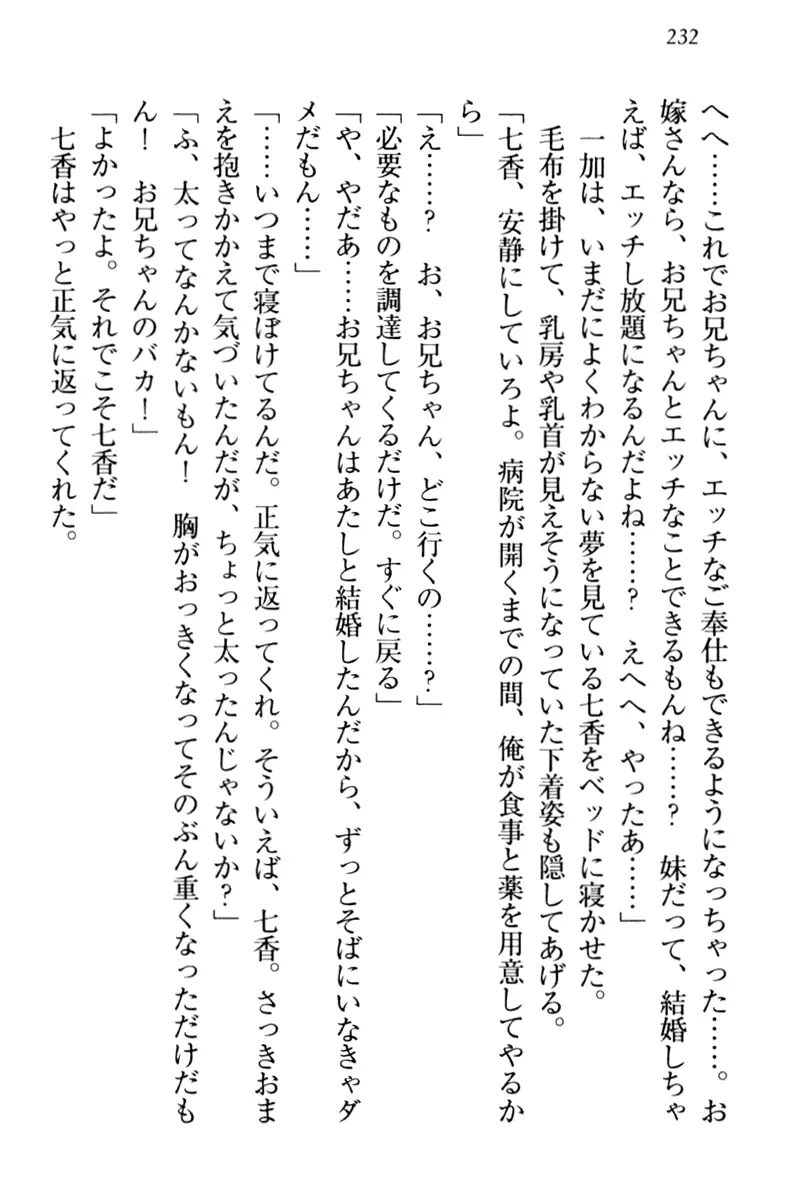 232
へへ……これでお兄ちゃんに、エッチなご奉仕もできるようになっちゃった……。お
嫁さんなら、お兄ちゃんとエッチなことできるもんね……？　妹だって、結婚しちゃ
えば、エッチし放題になるんだよね……？　えへへ、やったあ……」
一加は、いまだによくわからない夢を見ている七香をベッドに寝かせた。
毛布を掛けて、乳房や乳首が見えそうになっていた下着姿も隠してあげる。
「七香、安静にしていろよ。病院が開くまでの間、俺が食事と薬を用意してやるか
ら」
「え……？　お、お兄ちゃん、どこ行くの……？」
「必要なものを調達してくるだけだ。すぐに戻る」
「や、やだあ……お兄ちゃんはあたしと結婚したんだから、ずっとそばにいなきゃダ
メだもん……」
「……いつまで寝ぼけてるんだ。正気に返ってくれ。そういえば、七香。さっきおま
えを抱きかかえて気づいたんだが、ちょっと太ったんじゃないか？」
「ふ、太ってなんかないもん！　胸がおっきくなってそのぶん重くなっただけだも
ん！　お兄ちゃんのバカ！」
「よかったよ。それでこそ七香だ」
七香はやっと正気に返ってくれた。